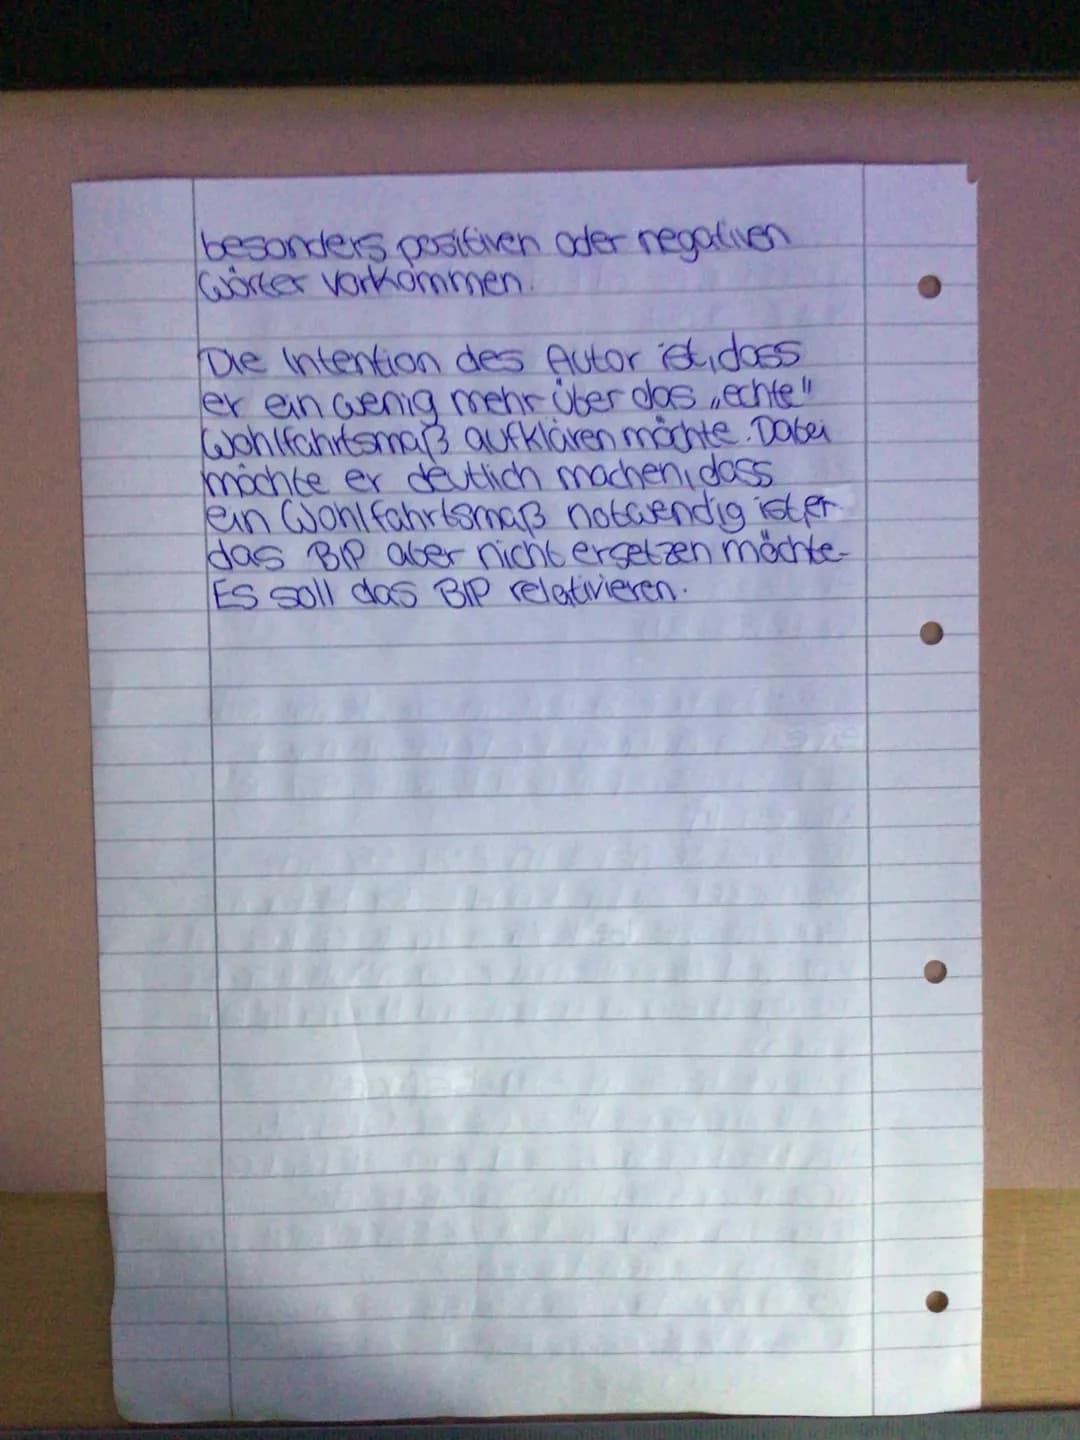 besonders positiven oder negativen
Wörter vorkommen.
Die Intention des Autor ist, dass
er ein wenig mehr über das „echte"
Wohlfahrtsmaß aufklären möchte. Dabei
möchte er deutlich machen, dass
ein Wohlfahrtsmaß notwendig ist er
das BIP aber nicht ersetzen möchte.
Es soll das BIP relativieren.